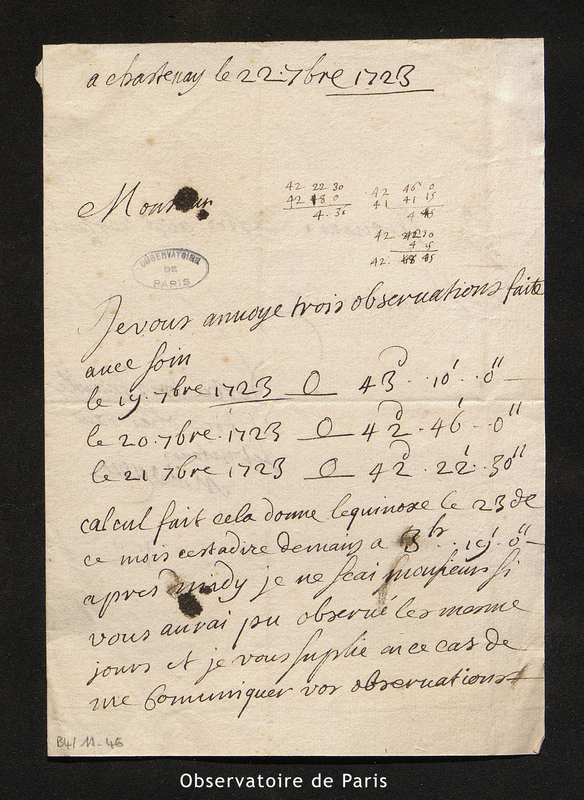 a chastenay le 22.7bre 1723
Monsieur
42 22 30
42 18 0
4.30
42 46 0
41 41 15
4 45
42
4 5
42.
OBSERVATOIRE
DE
PARIS
Je vous anuoye trois obseruations faite
auec soin
le 19.7bre 1723 O 43d..10'..0"
le 20.7bre.1723 O 42d.46'..0"
le 21 7bre 1723 O 42d.22'.30"
calcul fait cela donne lequinoxe le 23 de
ce mois cestadire demain a 3h..19'.0"
apres midy je ne scai monsieur si
vous aurai pu obserué les mesme
jours et je vous suplie en ce cas de
me Comuniquer vos obseruations
B4/11-46
Observatoire de Paris